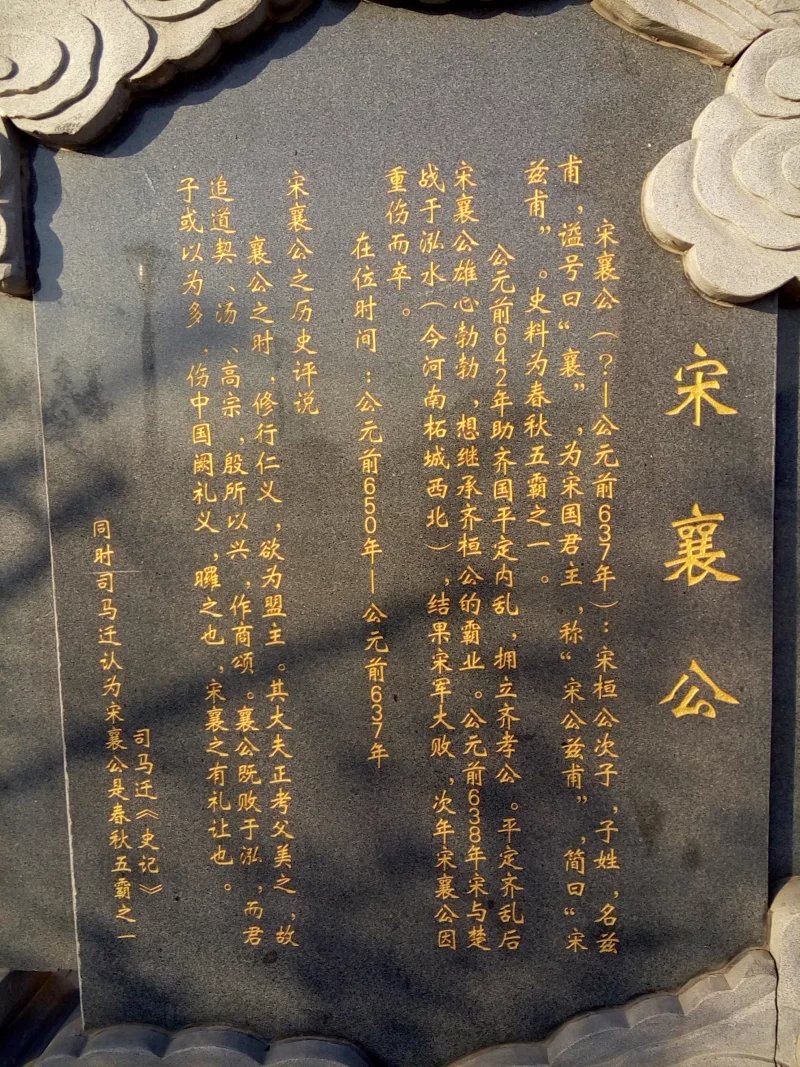 宋襄公
宋襄公（？—公元前637年）：宋桓公次子，子姓，名兹
甫，谥号曰“襄”，为宋国君主，称“宋公兹甫”，简曰“宋
兹甫”。史料为春秋五霸之一。
公元前642年助齐国平定内乱，拥立齐孝公。平定齐乱后
宋襄公雄心勃勃，想继承齐桓公的霸业。公元前638年宋与楚
战于泓水（今河南柘城西北），结果宋军大败，次年宋襄公因
重伤而卒。
在位时间：公元前650年—公元前637年
宋襄公之历史评说
襄公之时，修行仁义，欲为盟主。其大夫正考父美之，故
追道契、汤、高宗，殷所以兴，作商颂。襄公既败于泓，而君
子或以为多，伤中国阙礼义，曜之也，宋襄之有礼让也。
司马迁《史记》
同时司马迁认为宋襄公是春秋五霸之一